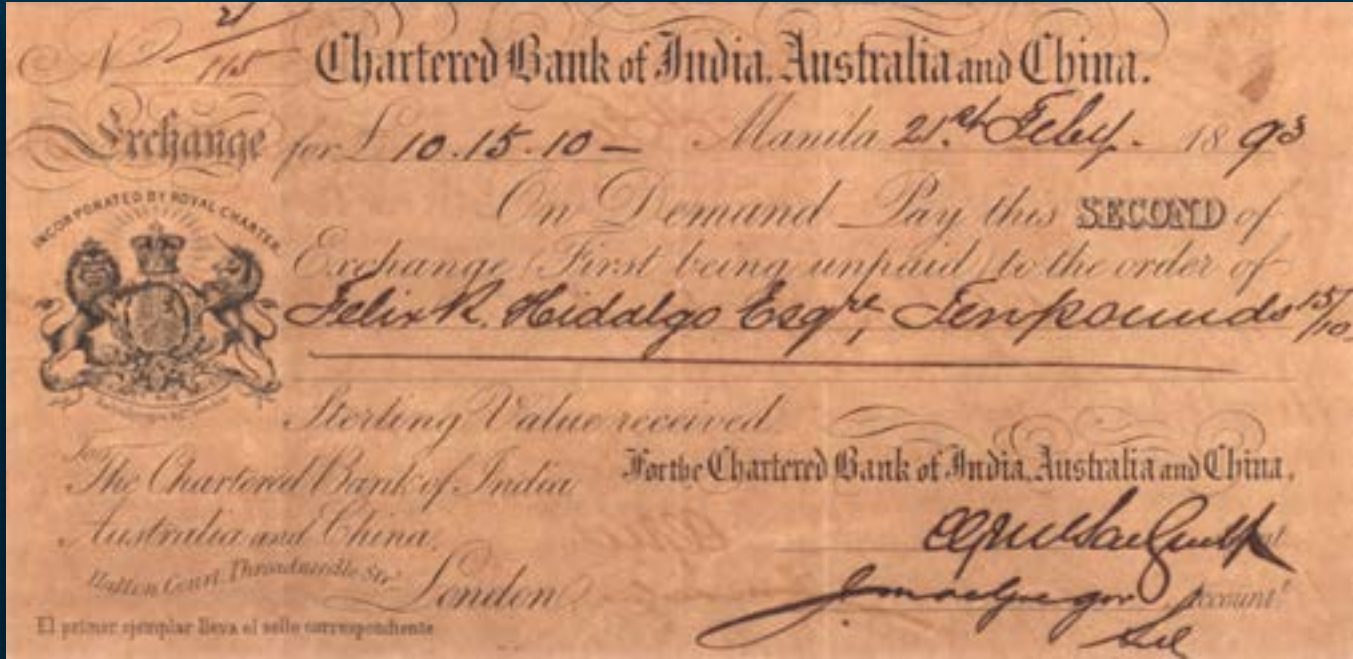 No 21/115
Chartered Bank of India, Australia and China.
Exchange for £ 10.15.10 – Manila 21st Feby. 1893
INCORPORATED BY ROYAL CHARTER
On Demand Pay this SECOND of
Exchange (First being unpaid) to the order of
Felix R. Hidalgo Esqre, Ten pounds 15/10
Sterling Value received
To
The Chartered Bank of India,
Australia and China,
Hatton Court, Threadneedle Str.
London.
For the Chartered Bank of India, Australia and China.
J. MacGregor Account.t
El primer ejemplar lleva el sello correspondiente